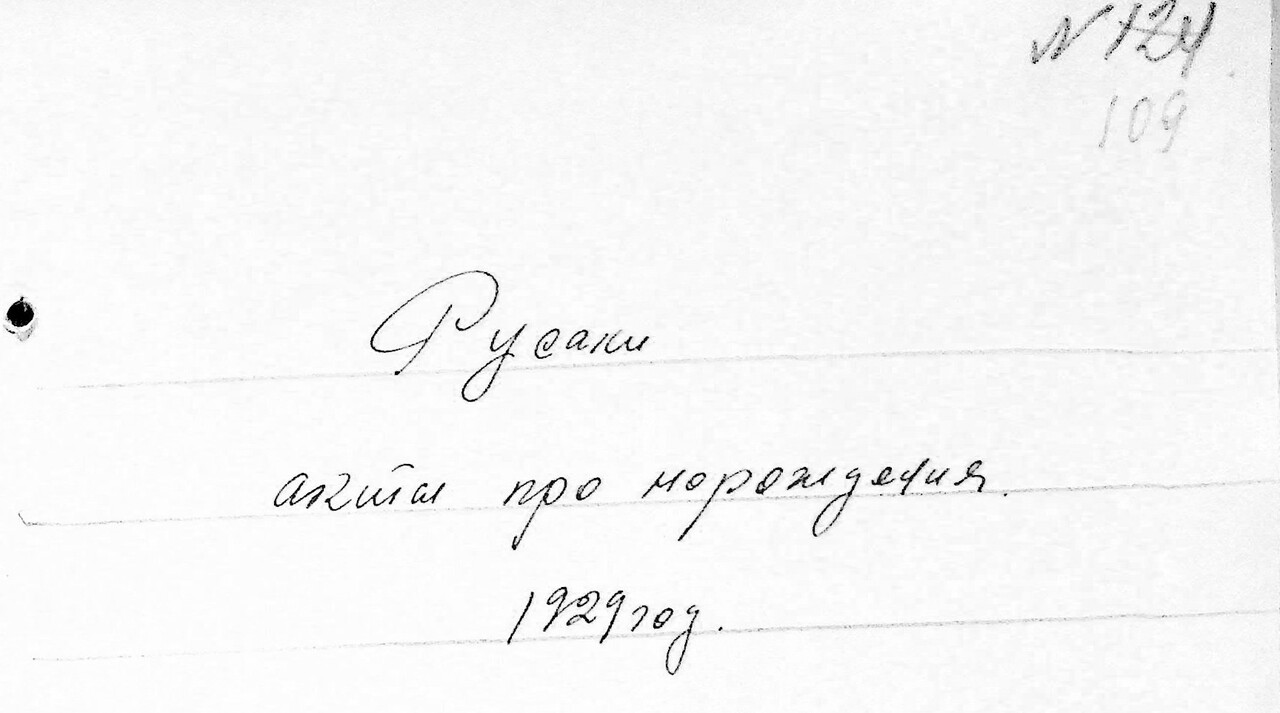 N 124
109
Русаки
акты про нарождения.
1929 год.